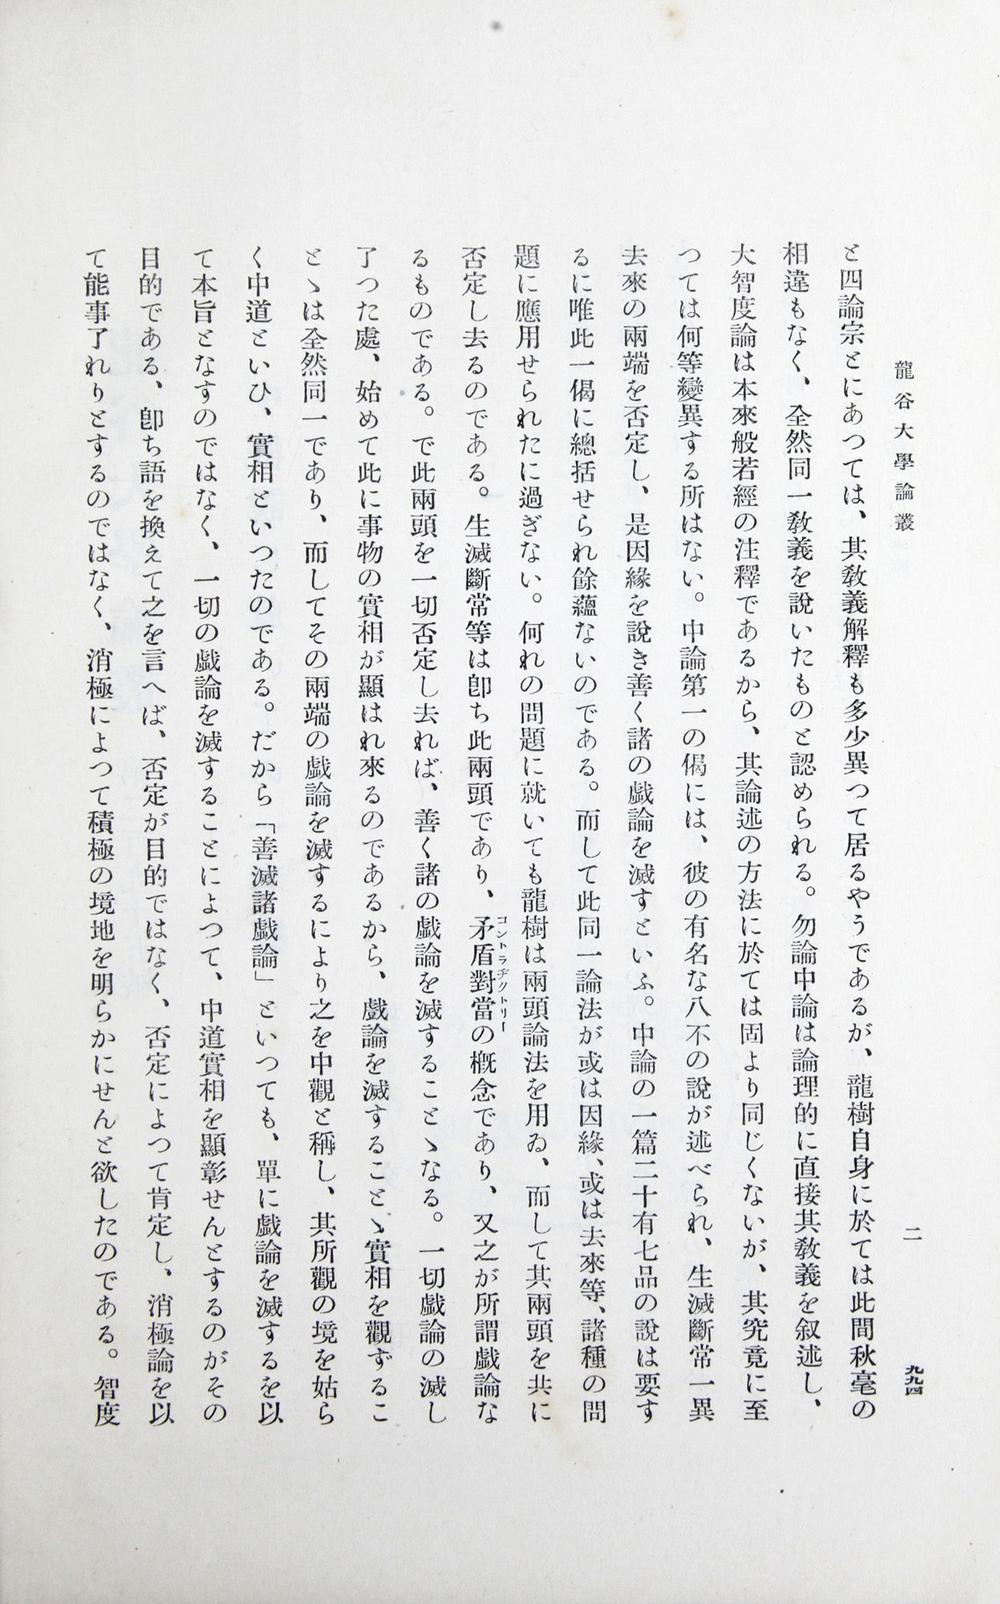 龍谷大學論叢
二
九九四
と四論宗とにあつては、其教義解釋も多少異つて居るやうであるが、龍樹自身に於ては此間秋毫の
相違もなく、全然同一教義を說いたものと認められる。勿論中論は論理的に直接其教義を叙述し、
大智度論は本來般若經の注釋であるから、其論述の方法に於ては固より同じくないが、其究竟に至
つては何等變異する所はない。中論第一の偈には、彼の有名な八不の說が述べられ、生滅斷常一異
去來の兩端を否定し、是因緣を說き善く諸の戲論を滅すといふ。中論の一篇二十有七品の說は要す
るに唯此一偈に總括せられ餘蘊ないのである。而して此同一論法が或は因緣、或は去來等、諸種の問
題に應用せられたに過ぎない。何れの問題に就いても龍樹は兩頭論法を用ゐ、而して其兩頭を共に
否定し去るのである。生滅斷常等は卽ち此兩頭であり、矛盾對當の槪念であり、又之が所謂戲論な
コントラヂクトリー
るものである。で此兩頭を一切否定し去れば、善く諸の戲論を滅することゝなる。一切戲論の滅し
了つた處、始めて此に事物の實相が顯はれ來るのであるから、戲論を滅することゝ實相を觀ずるこ
とゝは全然同一であり、而してその兩端の戲論を滅するにより之を中觀と稱し、其所觀の境を姑ら
く中道といひ、實相といつたのである。だから「善滅諸戲論」といつても、單に戲論を滅するを以
て本旨となすのではなく、一切の戲論を滅することによつて、中道實相を顯彰せんとするのがその
目的である、卽ち語を換えて之を言へば、否定が目的ではなく、否定によつて肯定し、消極論を以
て能事了れりとするのではなく、消極によつて積極の境地を明らかにせんと欲したのである。智度